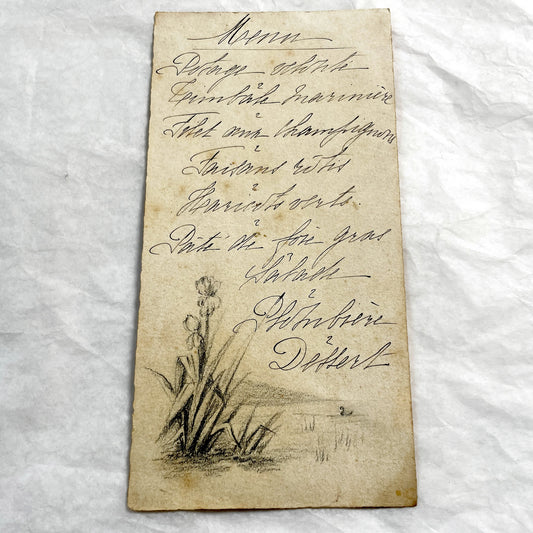 Menu
Potage
Timbale marinière
Filet aux Champignons
Faisans rôtis
Haricots verts.
Pâté de foie gras
Salade
Plombière
Dessert